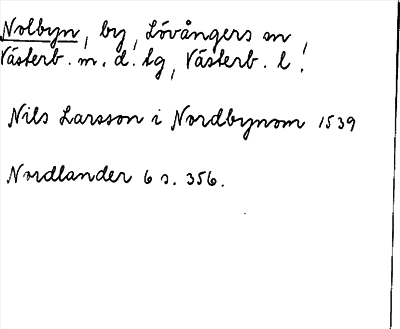 Nolbyn, by, Lövångers sn,
Västerb. m. d. tg, Västerb. l.
Nils Larsson i Nordbynom 1539
Nordlander 6 s. 356.